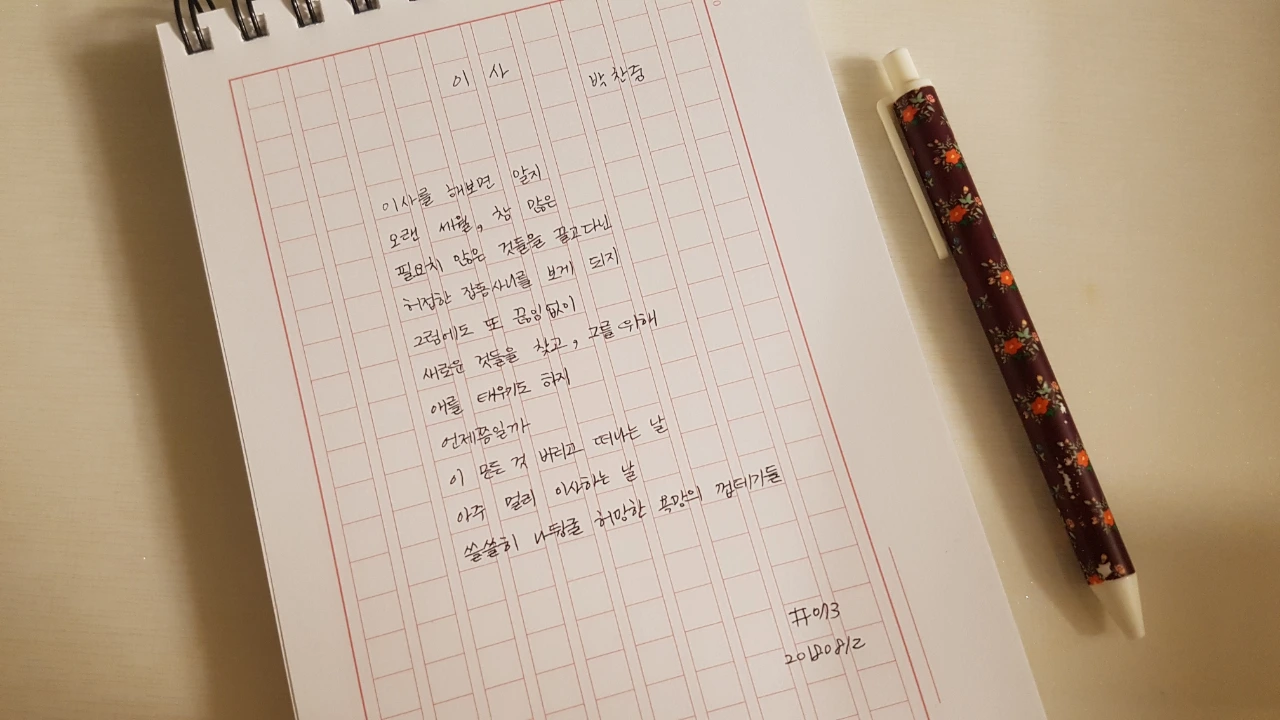 이사 박찬중
이사를 해보면 알지
오랜 세월, 참 많은
필요치 않은 것들을 끌고다닌
허접한 잡동사니를 보게 되지
그럼에도 또 끊임없이
새로운 것들을 찾고, 그를 위해
애를 태우기도 하지
언제쯤일까
이 모든 것 버리고 떠나는 날
아주 멀리 이사하는 날
쓸쓸히 나뒹굴 허망한 욕망의 껍데기들
#013
20180812